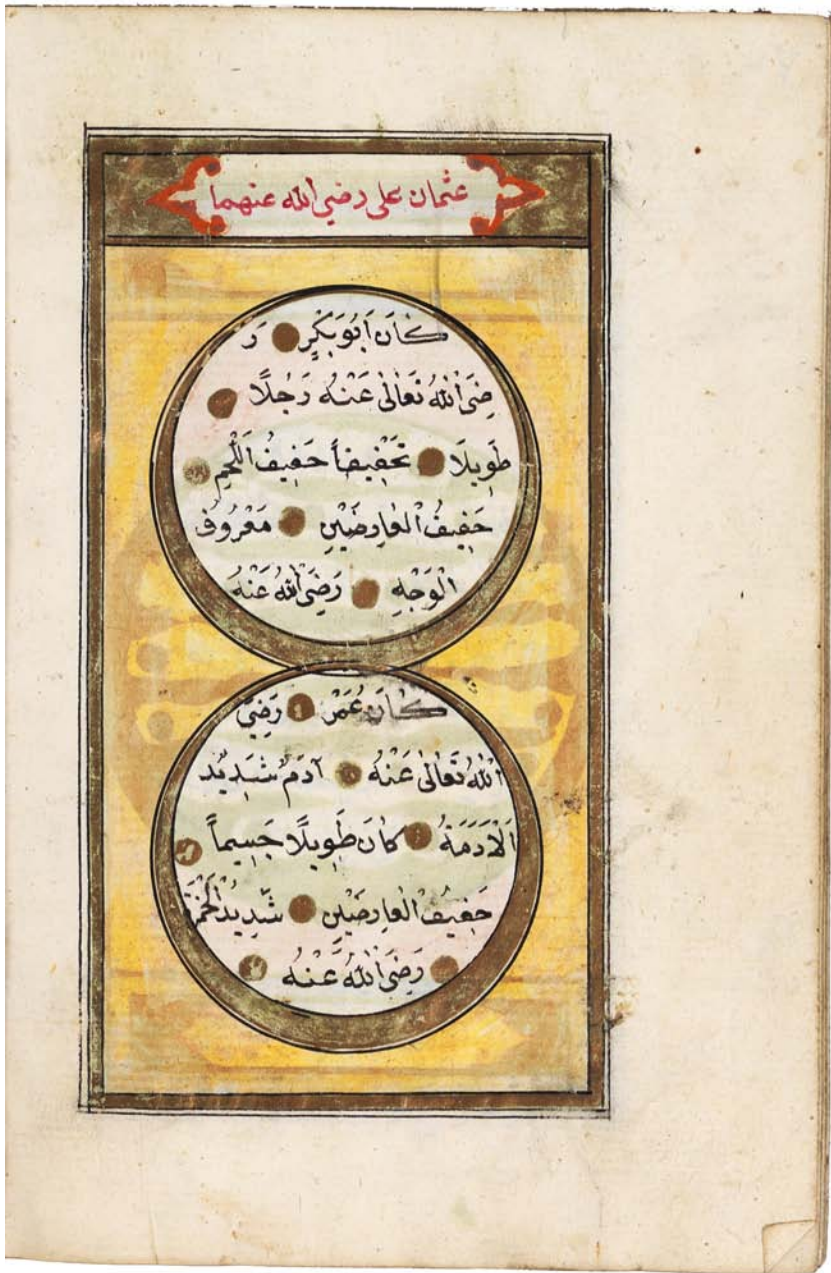 عثمان علی رضی الله عنهما
كَانَ اَبُوبَكْرٍ رَ
ضِىَ اللهُ تَعَالٰى عَنْهُ رَجُلًا
طَوِيلًا تَحَفِيضاً خَفِيفُ اللَّحْمِ
خَفِيفُ الْعَارِضَيْنِ مَعْرُوفُ
الْوَجْهِ رَضِىَ اللهُ عَنْهُ
كَانَ عُمَرْ رَضِىَ
اللهُ تَعَالٰى عَنْهُ آدَمُ شَدِيدُ
الْاَدَمَةُ كَانَ طَوِيلًا جَسِيماً
خَفِيفُ الْعَارِضَيْنِ شَدِيدُ الْحُمْرَةِ
رَضِىَ اللهُ عَنْهُ